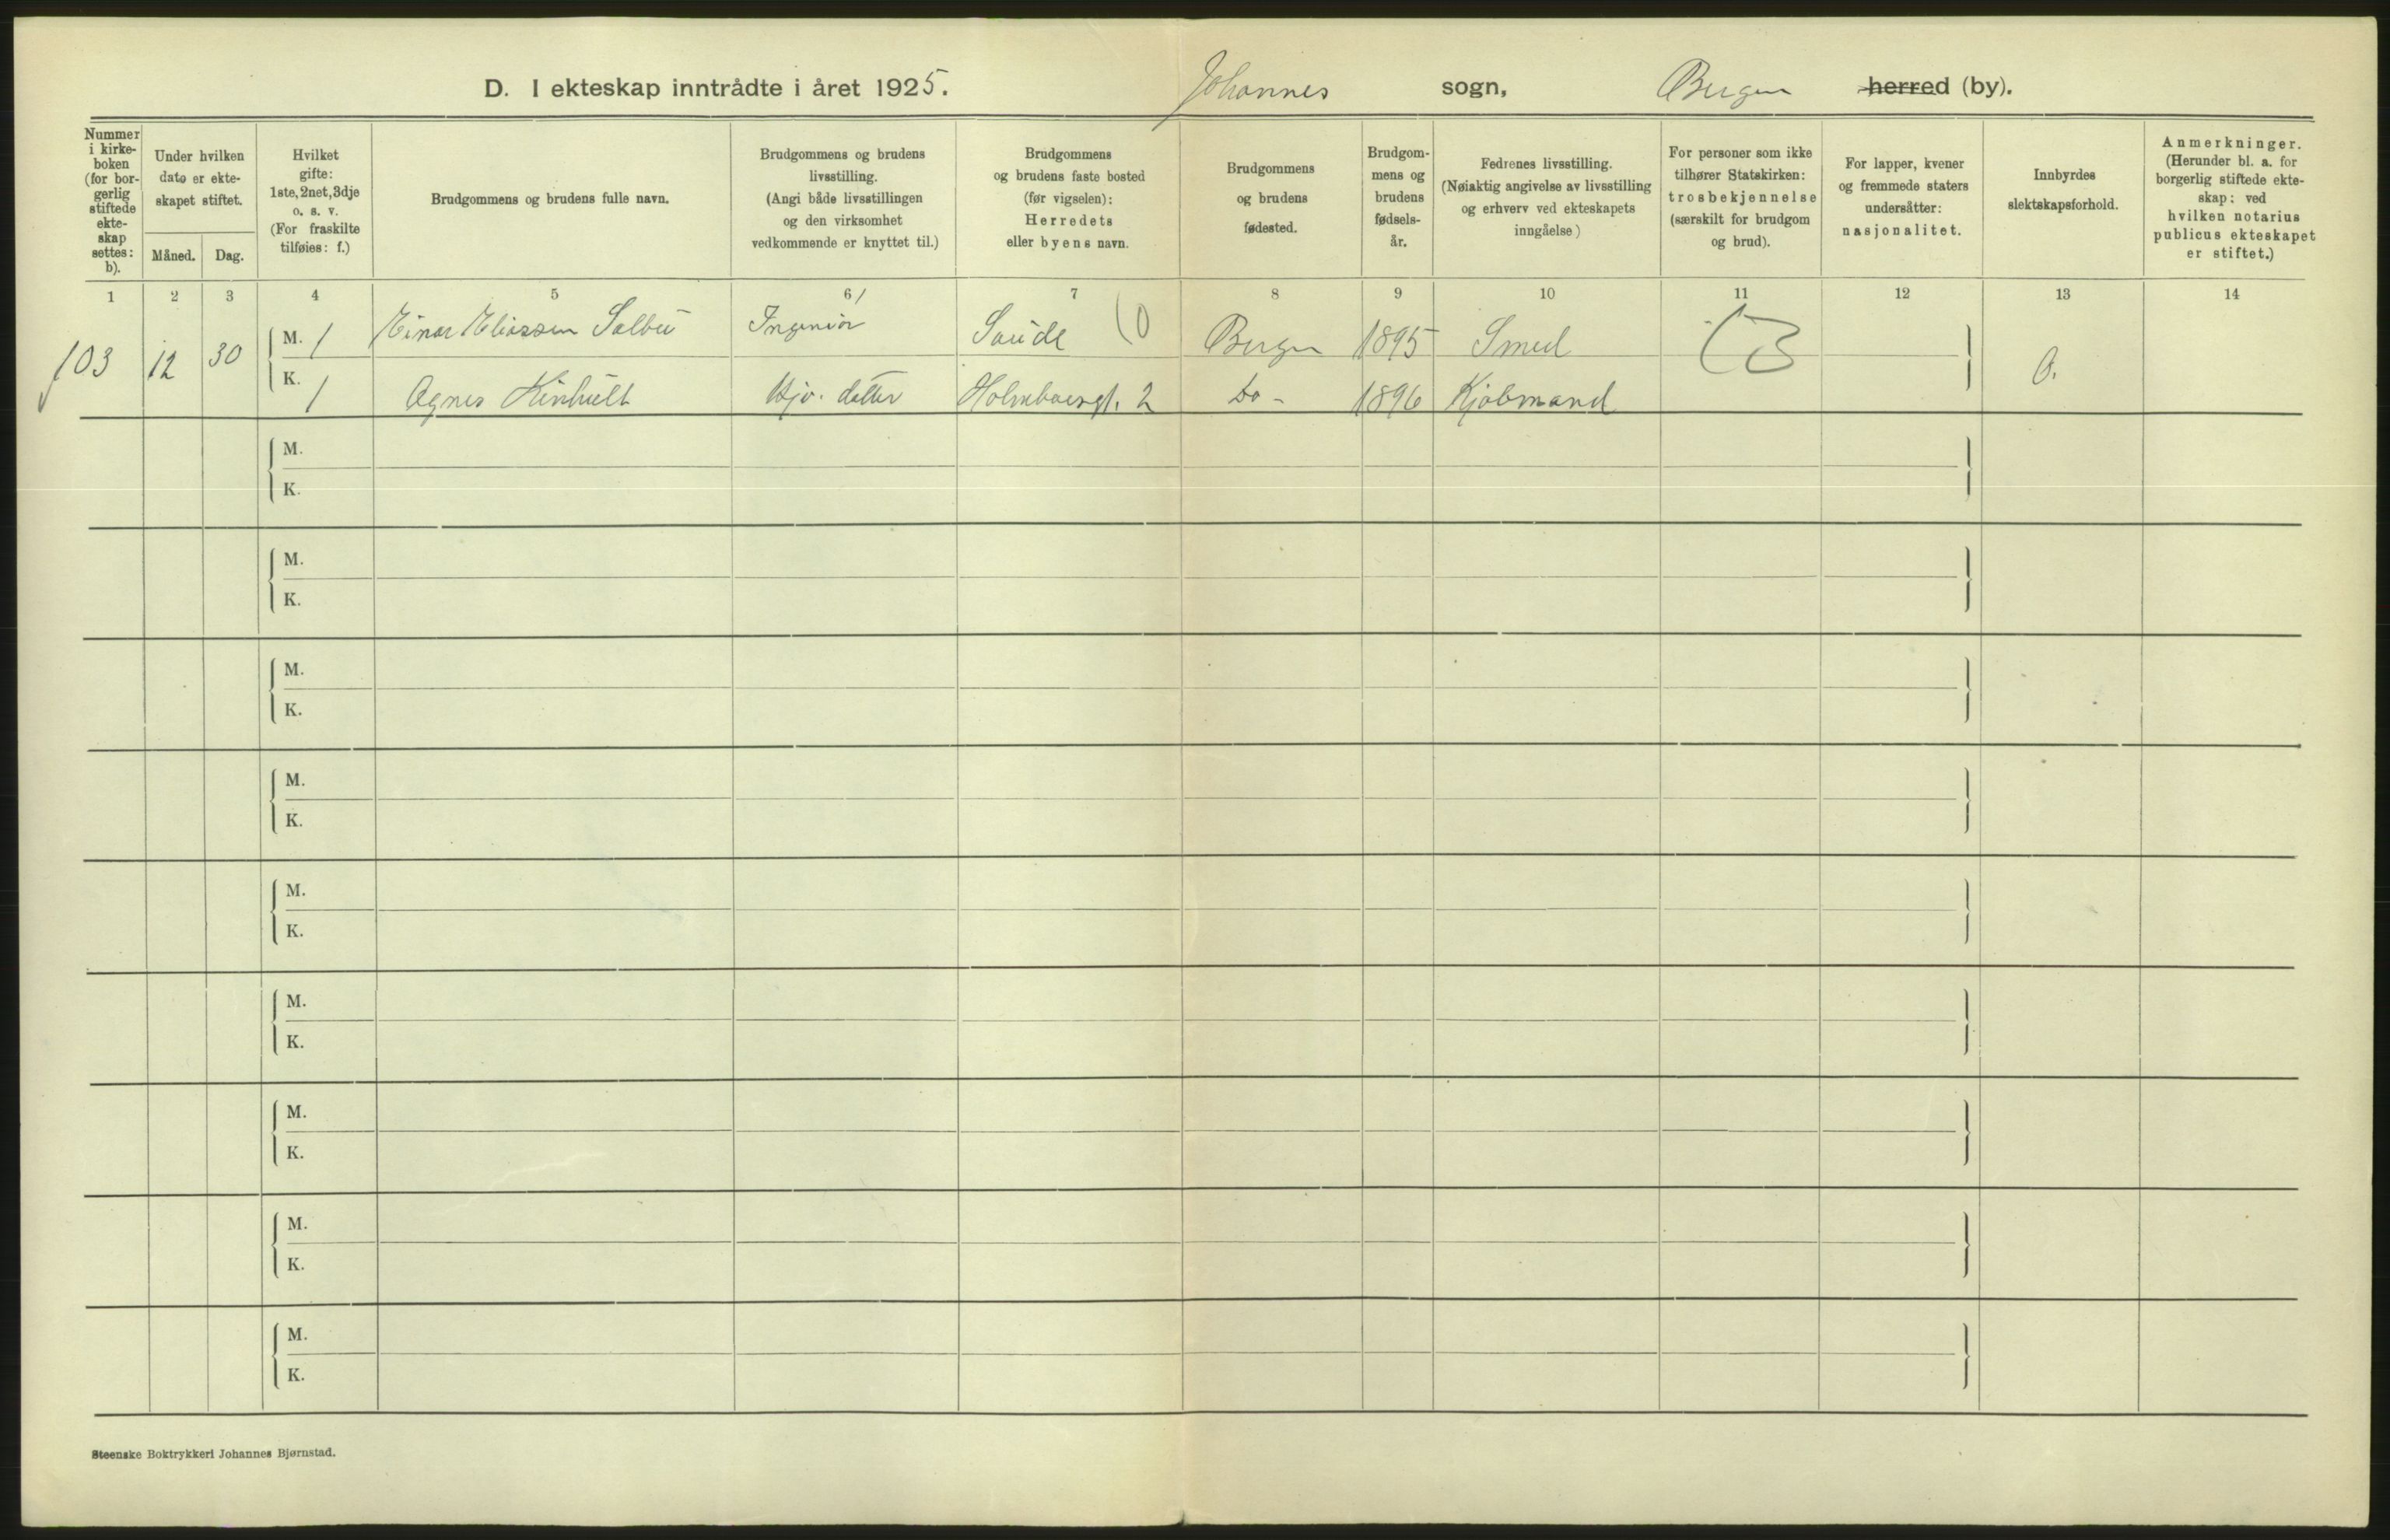 D. I ekteskap inntrådte i året 1925. Johannes sogn, Bergen herred (by).
Nummer
i kirke-
boken
(for bor-
gerlig
stiftede
ekte-
skap
settes:
b).
Under hvilken
dato er ekte-
skapet stiftet.
Måned.
Dag.
Hvilket
gifte:
1ste, 2net, 3dje
o. s. v.
(For fraskilte
tilføies: f.)
Brudgommens og brudens fulle navn.
Brudgommens og brudens
livsstilling.
(Angi både livsstillingen
og den virksomhet
vedkommende er knyttet til.)
Brudgommens
og brudens faste bosted
(før vigselen):
Herredets
eller byens navn.
Brudgommens
og brudens
fødested.
Brudgom-
mens og
brudens
fødsels-
år.
Fedrenes livsstilling.
(Nøiaktig angivelse av livsstilling
og erhverv ved ekteskapets
inngåelse)
For personer som ikke
tilhører Statskirken:
trosbekjennelse
(særskilt for brudgom
og brud).
For lapper, kvener
og fremmede staters
undersåtter:
nasjonalitet.
Innbyrdes
slektskapsforhold.
Anmerkninger.
(Herunder bl. a. for
borgerlig stiftede ekte-
skap: ved
hvilken notarius
publicus ekteskapet
er stiftet.)
1 2 3 4 5 6 7 8 9 10 11 12 13 14
103 12 30
M. 1 Einar Eliassen Salbu Ingeniør Saude Bergen 1895 Smed
K. 1 Agnes Hjv. datter Holmboesgt. 2 Do- 1896 Kjøbmand
0.
M.
K.
M.
K.
M.
K.
M.
K.
M.
K.
M.
K.
M.
K.
M.
K.
M.
K.
Steenske Boktrykkeri Johannes Bjørnstad.